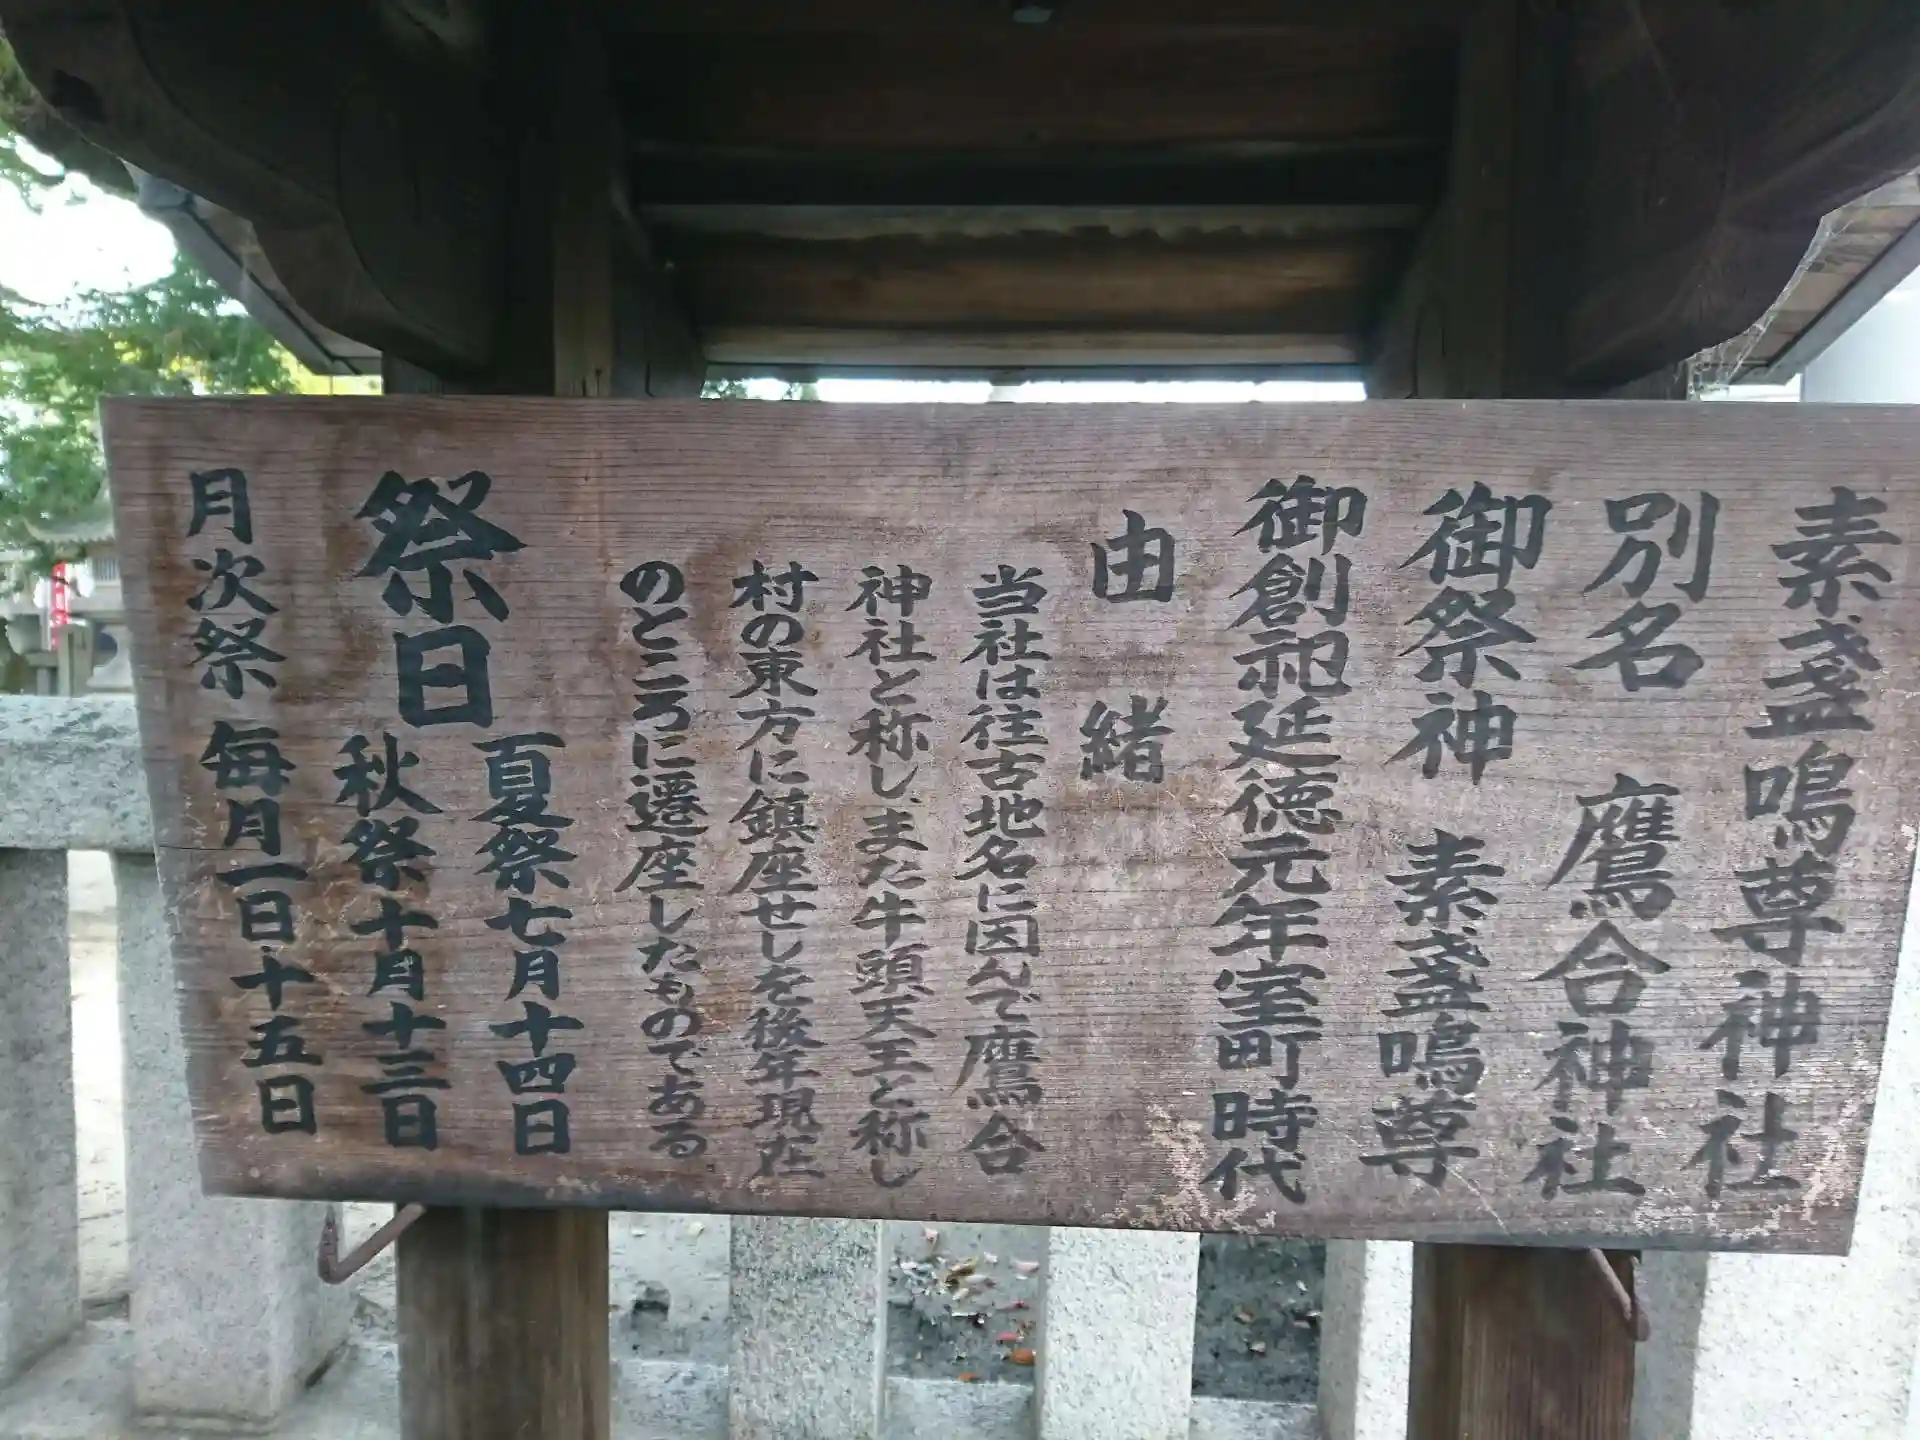 素盞嗚尊神社
別名 鷹合神社
御祭神 素盞嗚尊
御創祀延徳元年室町時代
由緒
当社は往古地名に因んで鷹合
神社と称し、また牛頭天王と称し
村の東方に鎮座せしを後年現在
のところに遷座したものである
祭日
夏祭七月十四日
秋祭十月十三日
月次祭 毎月一日・十五日